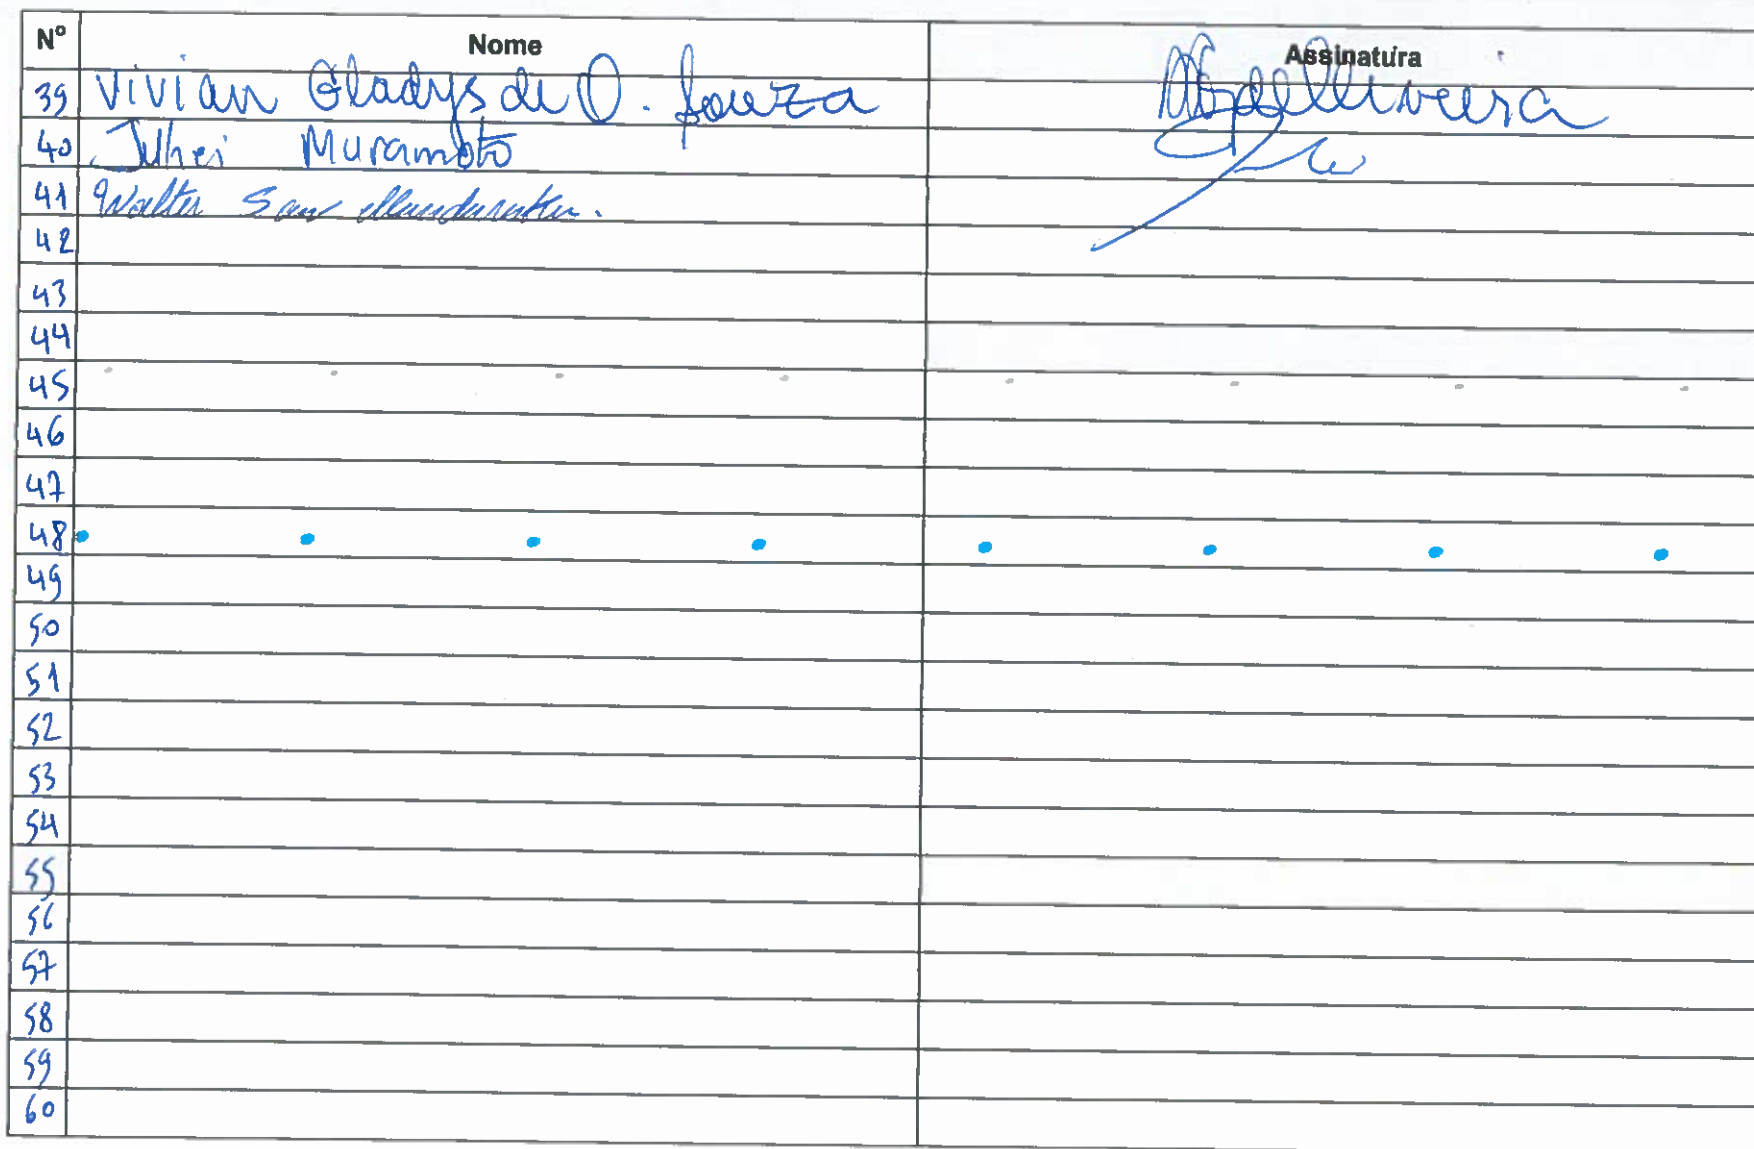 Nº Nome Assinatura
39 Vivian Gladys de O. Souza
40 Julhei Muramoto
41 Walter San
42
43
44
45
46
47
48
49
50
51
52
53
54
55
56
57
58
59
60